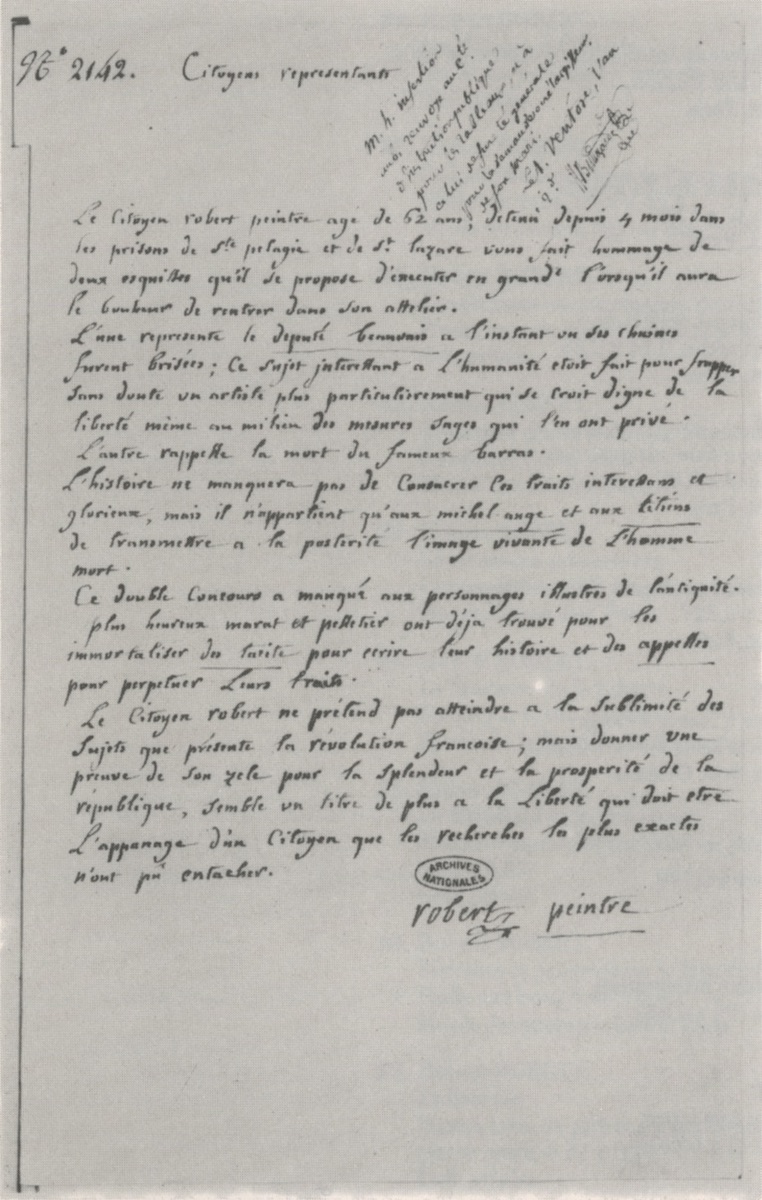 N.° 2142. Citoyens representants
M. h. insertion
renvoyé au c té
d'instruction publique
pour les tableaux, et à
celui de sûreté générale
pour la demande
Le 1. Ventose, l'an
2.e
Le Citoyen robert peintre agé de 62 ans, detenu depuis 4 mois dans
les prisons de Ste pelagie et de St. lazare vous fait hommage de
deux esquisses qu'il se propose d'executer en grand lorsqu'il aura
le bonheur de rentrer dans son attelier.
L'une represente le deputé beauvais a l'instant ou ses chaines
furent brisées; Ce sujet interessant a L'humanité etoit fait pour frapper
sans doute un artiste plus particulierement qui se croit digne de la
liberté même au milieu des mesures sages qui l'en ont privé.
L'autre rappelle la mort du fameux barras.
L'histoire ne manquera pas de Consacrer Ces traits interessans et
glorieux, mais il n'appartient qu'aux michel ange et aux titiens
de transmettre a la posterité l'image vivante de L'homme
mort.
Ce double Concours a manqué aux personnages illustres de l'antiquité.
plus heureux marat et pelletier ont déja trouvé pour les
immortaliser des tacite pour ecrire leur histoire et des appelles
pour perpetuer Leurs traits.
Le Citoyen robert ne prétend pas atteindre a la sublimité des
Sujets que présente la révolution francoise; mais donner une
preuve de son zele pour la splendeur et la prosperité de la
république, semble un titre de plus a la Liberté qui doit etre
L'appanage d'un Citoyen que les recherches les plus exactes
n'ont pu entacher.
ARCHIVES
NATIONALES
robert peintre